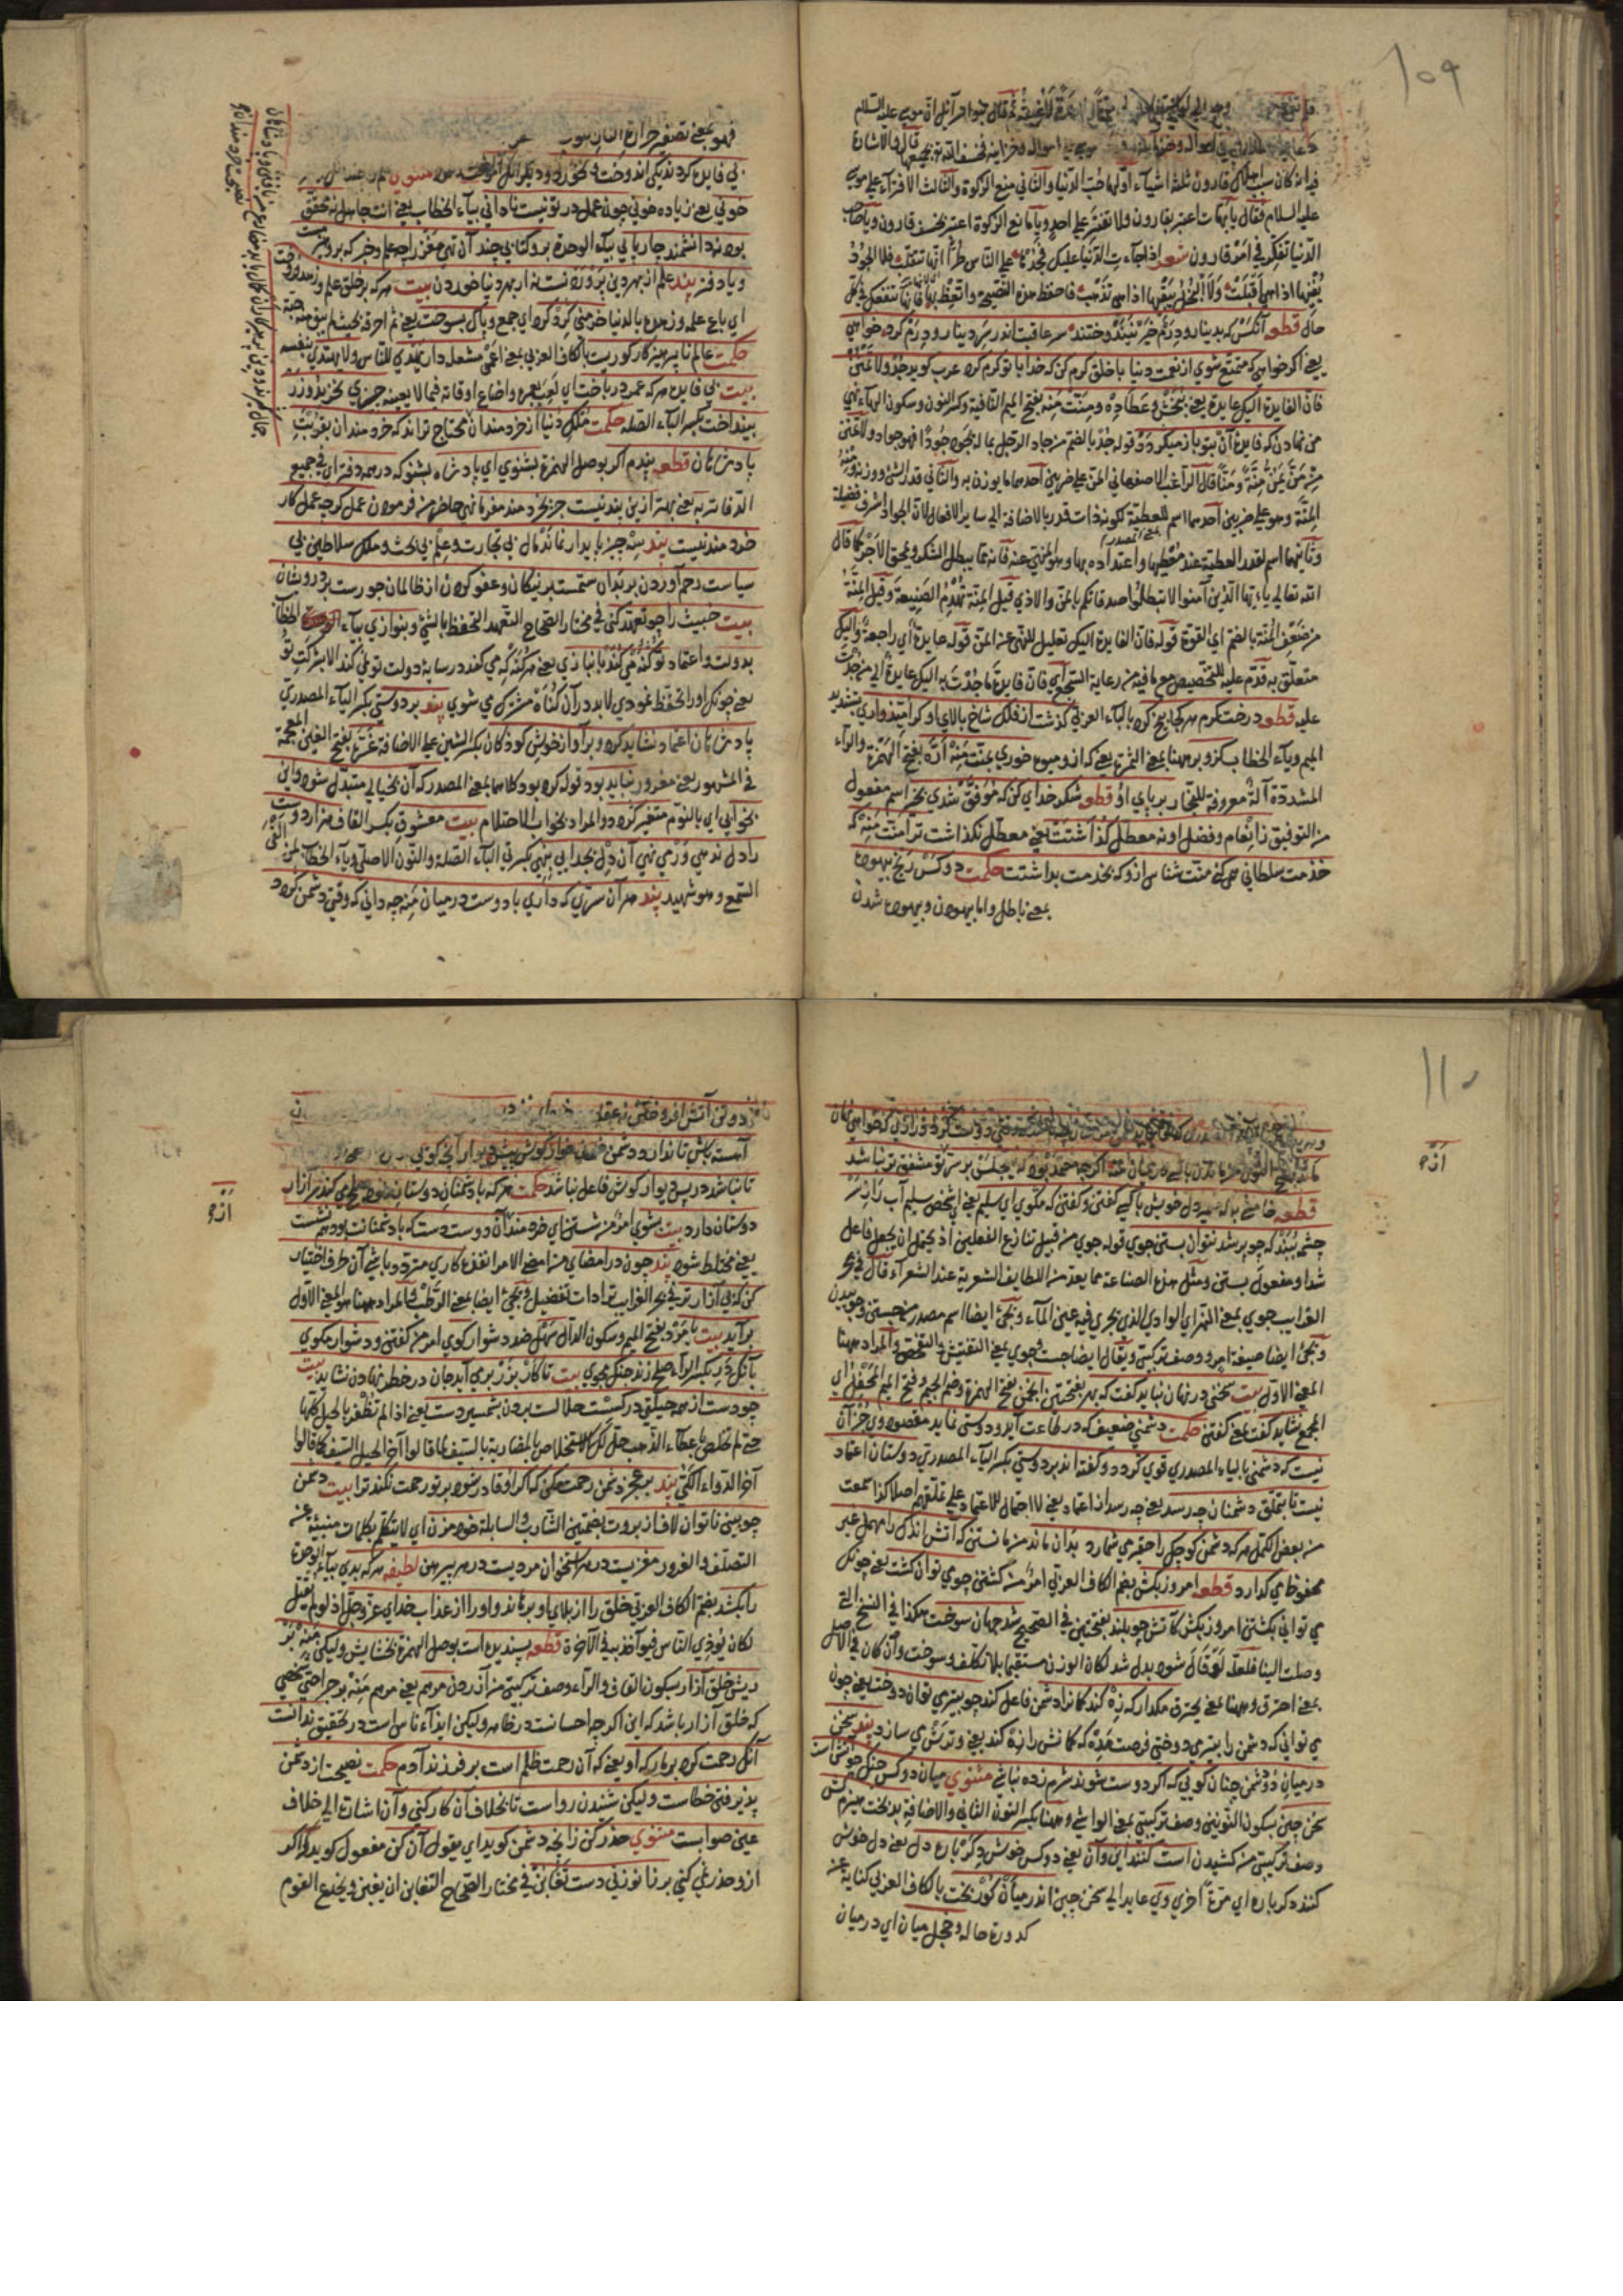 ١٥٩
قال والاشارة
فيه انه كان سبب اهلاك قارون ثلثة اشياء اولها حب الدنيا والثاني منع الزكوة والثالث الافتراء على موسى
عليه السلام فقال يا اعتبر بقارون ولا على احد ويا مانع الزكوة اعتبر بخسف قارون ويا صاحب
الدنيا تفكر في امر قارون شعر اذا جاءت الدنيا عليك فجد بها على الناس طرا انها تتقلب فلا الجود
يفنيها اذا هي اقبلت ولا البخل يبقيها اذا هي تذهب فاحفظ هذه النصيحة واتعظ بها فانها تنفعك في كل
حال قطعه آنكس كه بدينار ودرم خير نيندوخت سر عاقبت اندر سر دينار ودرم كرد خواهي
يعني اكر خواهي كه متمتع شوي از نعمت دنيا با خلق كرم كن كه خدا با تو كرم كرد عرب كويد جد ولا تمنن
فان الفايدة اليك عايدة يعني ببخش وعطا ده ومنت منه بفتح الميم النافية وكسر النون وسكون الهاء نهي
من نهادن كه فايدة آن بتو باز ميكردد قوله جد بالضم من جاد الرجل بماله يجود جودا فهو جواد ولا تمنن
من من يمن منة ومنا قال الراغب الاصفهاني المن على ضربين احدهما ما يوزن به والثاني قدر الشئ ووزنه ومنه
المنة وهو على ضربين احدهما اسم للعطية لكونه ذات قدر بالاضافة الى ساير الافعال لان الجواد اشرف فضيلة
وثانيهما اسم لقدر العطية عند معطيها واعتداده بها وهو المنهي عنه فانه مما يبطل الشكر ويمحق الاجر كما قال
الله تعالى يا ايها الذين آمنوا لا تبطلوا صدقاتكم بالمن والاذى قيل المنة تهدم الصنيعة وقيل المنة
من ضعف المنة بالضم اي القوة قوله فان الفايدة اليك تعليل للنهي عن المن قوله عايدة اي راجعة واليك
متعلق به قدم عليه للتخصيص مع ما فيه من رعاية السجع اي فان فايدة ما جدت به اليك عايدة اي من جدت
عليه قطعه درخت كرم هر كجا بيخ كرد بالباء العربي كذشت از فلك شاخ بالاي او كر اميدواري بتشديد
الميم وياء الخطاب كزو بر بمعنى الثمرة يعني كه از وميوه خوري بمنت منه اره بفتح الهمزة والراء
المشددة آلة معروفة للنجار بر پاي او قطعه شكر خداي كن كه موفق شدي بخير اسم مفعول
من التوفيق ز انعام وفضل او نه معطل كذاشتت يعني معطل نكذاشت ترا منت منه كه
خدمت سلطان همي كني منت شناس ازو كه بخدمت بداشتت حكمت دو كس رنج بيهوده
بمعنى باطل واما بيهودن وبيهوده شدن
فهو بمعنى
بي فايده كرد ند يكي آنكه اندوخت ونخورد وديكر آنكه آموخت مثنوي
خواني يعني زياده خواني چون عمل در تو نيست ناداني بياء الخطاب يعني انت جاهل نه محقق
بود نه دانشمند چار پايي بياء الوحدة برو كتابي چند آن تهي مغز را چه علم وخبر كه برو هيزمست
ويا دفتر پند علم از بهر دين پروردنست نه از بهر دنيا خوردن بيت هر كه پرهيز وعلم وزهد فروخت
اي باع علمه وزهده بالدنيا خرمني كرد كرد اي جمع وپاك بسوخت يعني ثم احرقه بحيث لم يبق منه حبة
حكمت عالم ناپرهيزكار كوريست بالكاف العربي بمعنى اعمى مشعله دار يهتدى للناس ولا يهتدي بنفسه
بيت بي فايده هر كه عمر در باخت اي لعب بعمره واضاع اوقاته فيما لا يعنيه چيزي نخريد وزر
بينداخت بكسر الباء الصله حكمت ملك دنيا از خردمندان محتاج تر اند كه خردمندان بقربت
پادشاهان قطعه پندم اكر بوصل الهمزة بشنوي اي پادشاه بشنو كه در همه دفتر اي في جميع
الدفاتر به يعني بهتر ازين پند نيست جز بخردمند مفرما نهي حاضر من فرمودن عمل كرچه عمل كار
خردمند نيست پند سه چيز پايدار نماند مال بي تجارت وعلم بي بحث وملك سلاطين بي
سياست رحم آوردن بر بدان ستمست بر نيكان وعفو كردن از ظالمان جورست بر درويشان
بيت خبيث را چو تعهد كني في مختار الصحاح التعهد التحفظ بالشئ وبنوازي بياء الخطاب
بدولت واعتماد تو كنه مي كند بانبازي يعني هر كنه كه مي كند در سايه دولت تو نمي كند الا بشركت تو
يعني چونكه او را تحفظ نمودي لابد در آن كناه مشترك مي شوي پند بر دوستي بكسر الياء المصدري
پادشاهان اعتماد نشايد كرد وبر آواز خوش كودكان بكسر الشين على الاضافة غره بفتح الغين المعجمة
في المشهور يعني مغرور نبايد بود قوله كرد بود كلاهما بمعنى المصدر كه آن بخيالي متبدل شود واين
بخوابي اي بالنوم متغير كردد والمراد بخواب الاحتلام بيت معشوق بكسر القاف هزار دوست
را دل ندهي ور مي نهي آن دل بجدايي بنهي بكسرتي الباء الصلة والنون الاصلي وياء الخطاب لمن القى
السمع وهو شهيد پند هر آن سري كه داري با دوست در ميان منه چه داني كه وقتي دشمن كردد
١١٠
قطعه خامشي به كه ضمير دل خويش با كسي كفتن وكفتن كه مكوي اي سليم يعني اي شخص سليم آب ز
چشمه ببند كه چو پر شد نتوان بستن جوي قوله جوي من قبيل تنازع الفعلين اذ يحتمل ان يجعل فاعل
شد او مفعول بستن ومثل هذه الصناعة مما يعد من اللطايف الشعرية عند الشعراء قال في بحر
الغرايب جوي بمعنى النهر اي الوادي الذي يجري فيه عين الماء ويجئ ايضا اسم مصدر من جستن وجوييدن
ويجئ ايضا صيغة امر ووصف تركيبي ويقال ايضا جست وجوي بمعنى التفتيش والتفحص والمراد ههنا
المعنى الاول بيت سخني در نهان نبايد كفت كه بهر بفتحتين انجمن بفتح الهمزة وضم الجيم وفتح الميم المحفل اي
المجمع نشايد كفت بمعنى كفتن حكمت دشمني ضعيف كه در طاعت آيد ودوستي نمايد مقصود وي جز آن
نيست كه دشمني بالياء المصدري قوي كردد وكفته اند بر دوستي بكسر الياء المصدري دوستان اعتماد
نيست تا بتملق دشمنان چه رسد يعني چه رسد از اعتماد يعني لا احتمال للاعتماد على تملقهم اصلا كذا سمعت
من بعض الكمل هر كه دشمن كوچك را حقير مي شمارد بدان ماند من مانستن كه آتش اندك را مهمل غير
محفوظ مي كذارد قطعه امروز بكش بضم الكاف العربي امر من كشتن چو مي توان كشت يعني چونكه
مي تواني بكشتن امروز بكش كاتش چو بلند بفتحتين في الصحيح شد جهان سوخت هكذا في النسخ التي
وصلت الينا فلعله لو قال شود بدل شد لكان الوزن مستقيما بلا تكلف وسوخت وان كان في الاصل
بمعنى احترق وههنا بمعنى يحترق مكذار كه زه كند كمانرا دشمن فاعل كند چو بتير مي توان دوخت يعني چون
مي تواني كه دشمن را بتير بدوختي فرصت مده كه كمانش را زه كند يعني وترش مي سازد پند سخن
در ميان دو دشمن چنان كويي كه اكر دوست شوند شرم زده نباشي مثنوي ميان دو كس جنك چو آتش است
سخن چين بسكون النونين وصف تركيبي بمعنى الواشي وههنا بكسر النون الثاني والاضافة بدبخت هيزم كش
وصف تركيبي من كشيدن است كنند اين وآن يعني دو كس خوش دكر باره دل يعني دل خوش
كنند دكر باره اي مرة اخرى وي عايد الى سخن چين اندر ميان كور بخت بالكاف العربي كناية عن
كدورة حاله وخجل ميان اي در ميان
دو تن آتش افروختن نه عقل
آهسته باش تا ندارد دشمن خونخوار كوش پيش ديوار آنچه كويي
تا نباشد در پس ديوار كوش فاعل نباشد حكمت هر كه با دشمنان دوستان صلح مي كند سر آزار
دوستان دارد بيت بشوي امر من شستن اي خردمند از آن دوست دست كه با دشمنانت بود هم نشست
يعني مختلط شود پند چون در امضاي من امضى الامر انفذه كاري متردد باشي آن طرف اختيار
كن كه بي آزار تر في بحر الغرايب تر ادات تفضيل ويجئ ايضا بمعنى الرطب والمراد ههنا هو المعنى الاول
برآيد بيت با مرد بفتح الميم وسكون الدال سهل ضد دشوار كوي امر من كفتن ودشوار مكوي
با آنكه در بكسر الراء صلح زند جنك مجوي بيت تا كار بزر بر مي آيد جان در خطر نهادن نشايد بيت
چو دست از همه حيلتي در كسست حلالست بردن بشمشير دست يعني اذا لم تظفر بالحيل كلها
حتى لم تخلص باعطاء الذهب حل لك الاستخلاص بالمضاربة بالسيف لما قالوا آخر الحيل السيف كما قالوا
آخر الدواء الكي پند بر عجز دشمن رحمت مكن كه اكر او قادر شود بر تو رحمت نكند ترا بيت دشمن
چو بيني ناتوان لاف از بروت بضمتين الشارب والسابلة خود مزن اي لا تتكلم بكلمات منبئة عن
التصلف والغرور مغزيست در هر استخوان مرديست در هر پيرهن لطيفه هر كه بدي بياء الوحدة
را بكشد بضم الكاف العربي خلق را از بلاي او برهاند واو را از عذاب خداي عز وجل اذ لو لم يقتل
لكان يؤذي الناس فيؤاخذ به في الآخرة قطعه پسنديده است بوصل الهمزة بخشايش وليكن منه بر
ريش خلق آزار بسكون القاف والراء وصف تركيبي من آزردن مرهم يعني مرهم منه بر جراحتي شخصي
كه خلق آزار باشد كه اين اكرچه احسانست در ظاهر وليكن ايذاء ناس است در تحقيق ندانست
آنكه رحمت كرد بر مار كه او يعني كه آن رحمت ظلم است بر فرزند آدم حكمت نصيحت از دشمن
پذيرفتن خطاست وليكن شنيدن رواست تا بخلاف آن كار كني وآن اشارة الى خلاف
عين صوابست مثنوي حذر كن زانچه دشمن كويد اي يقول آن كن مفعول كويد كه اكر
ازو حذر نمي كني بر زانو زني دست تغابن في مختار الصحاح التغابن ان يغبن ويخدع القوم